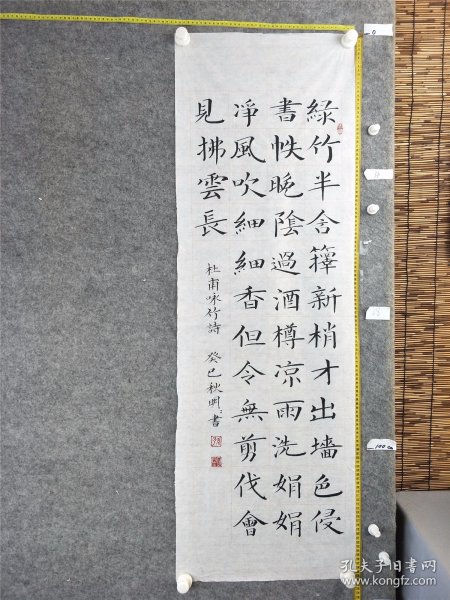 綠竹半含籜新梢才出墻色侵
書帙晚陰過酒樽凉雨洗娟娟
淨風吹細細香但令無剪伐會
見拂雲長
杜甫咏竹詩 癸巳秋明書
0
100cm
孔夫子旧书网
www.kongfz.com